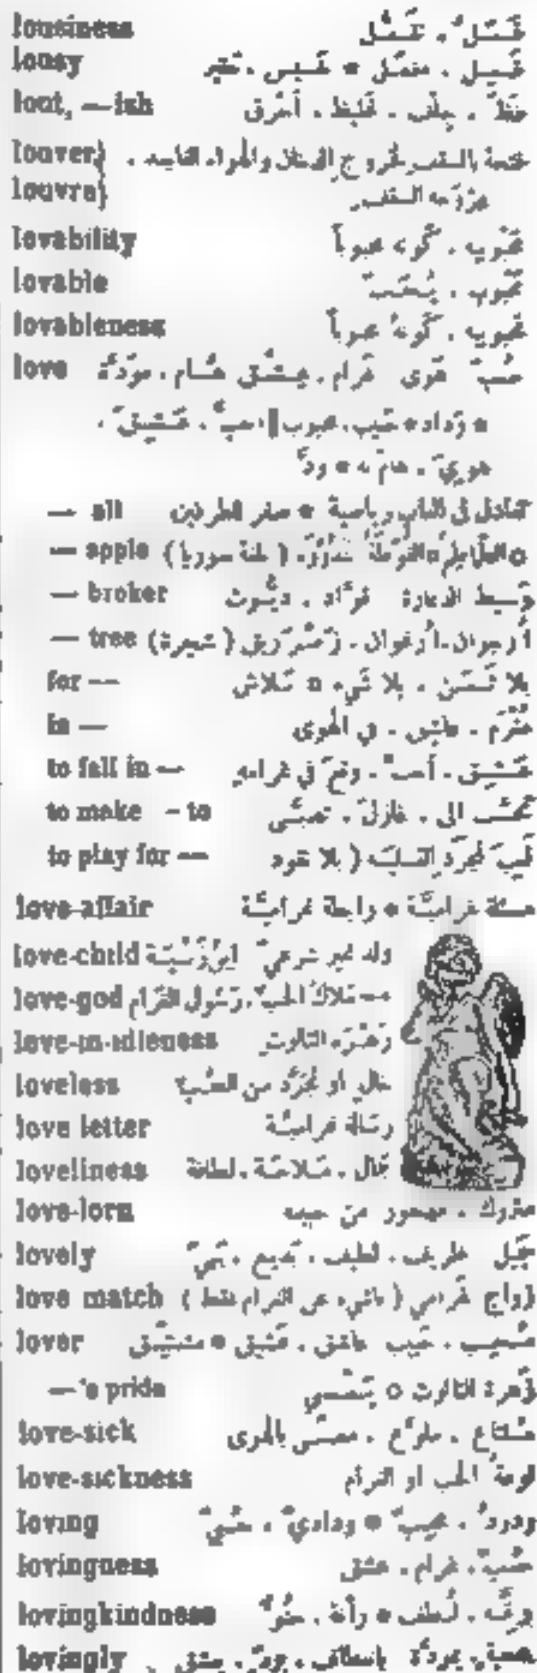 lousiness قَمَل. تَقَمُّل
lousy قَمِل. مقمّل
lout, — ish فظّ. جِلْف. غليظ. أخرق
louver}
louvre}
lovability محبوبيه. كَونه محبوباً
lovable محبوب. يُحَبّ
lovableness محبوبيه. كَونهُ محبوباً
love حُبّ هَوى غَرام. عِشْق هُيام. مَودّة
* وِداد * حَبيب. محبوب ‖ حبَّ. عَشِقَ.
هَوِيَ. هامَ به * ودَّ
— all تعادل في العاب رياضية * صفر للطرفين
— apple ( بلغة سوريا )
— broker وَسيط الدعارة قوّاد. ديّوث
— tree أُرجوان. أُرغوان. ( شجرة )
for — بلا ثَمَن. بلا شيء
in — مُغْرَم. عاشق. في الهوى
to fall in — عَشِقَ. أحبَّ. وقعَ في غرامه
to make – to تَحَبَّب الى. غازلَ
to play for — لَعِبَ لمجرّد التسلية ( بلا نقود
love-affair مسئلة غراميَّة * رابطة غراميَّة
love-child ولد غير شرعيّ
love-god مَلاكُ الحبّ. رَسُول الغَرام
love-in-idleness زَهْرَة الثالوث
loveless خالٍ او مُجَرَّد من الحُبّ
love letter رسالة غراميَّة
loveliness جَمال. مَلاحَة. لطافة
love-lorn متروك. مهجور من حبيبه
lovely جميل ظريف. لطيف. بَديع. بَهيّ
love match زواج غَرامي ( ناشيء عن الغرام فقط )
lover مُحِبّ. حَبيب عاشق. عَشيق
— 's pride زَهرة الثالوث
love-sick مُلتاع. مُلَوَّع. بالهوى
love-sickness لوعةُ الحب او الغرام
loving ودودٌ. مُحِبّ * وداديّ. حُبّيّ
lovingness حُبّ. غرام. عشق
lovingkindness لُطف * رأفة. حُنُوّ
lovingly